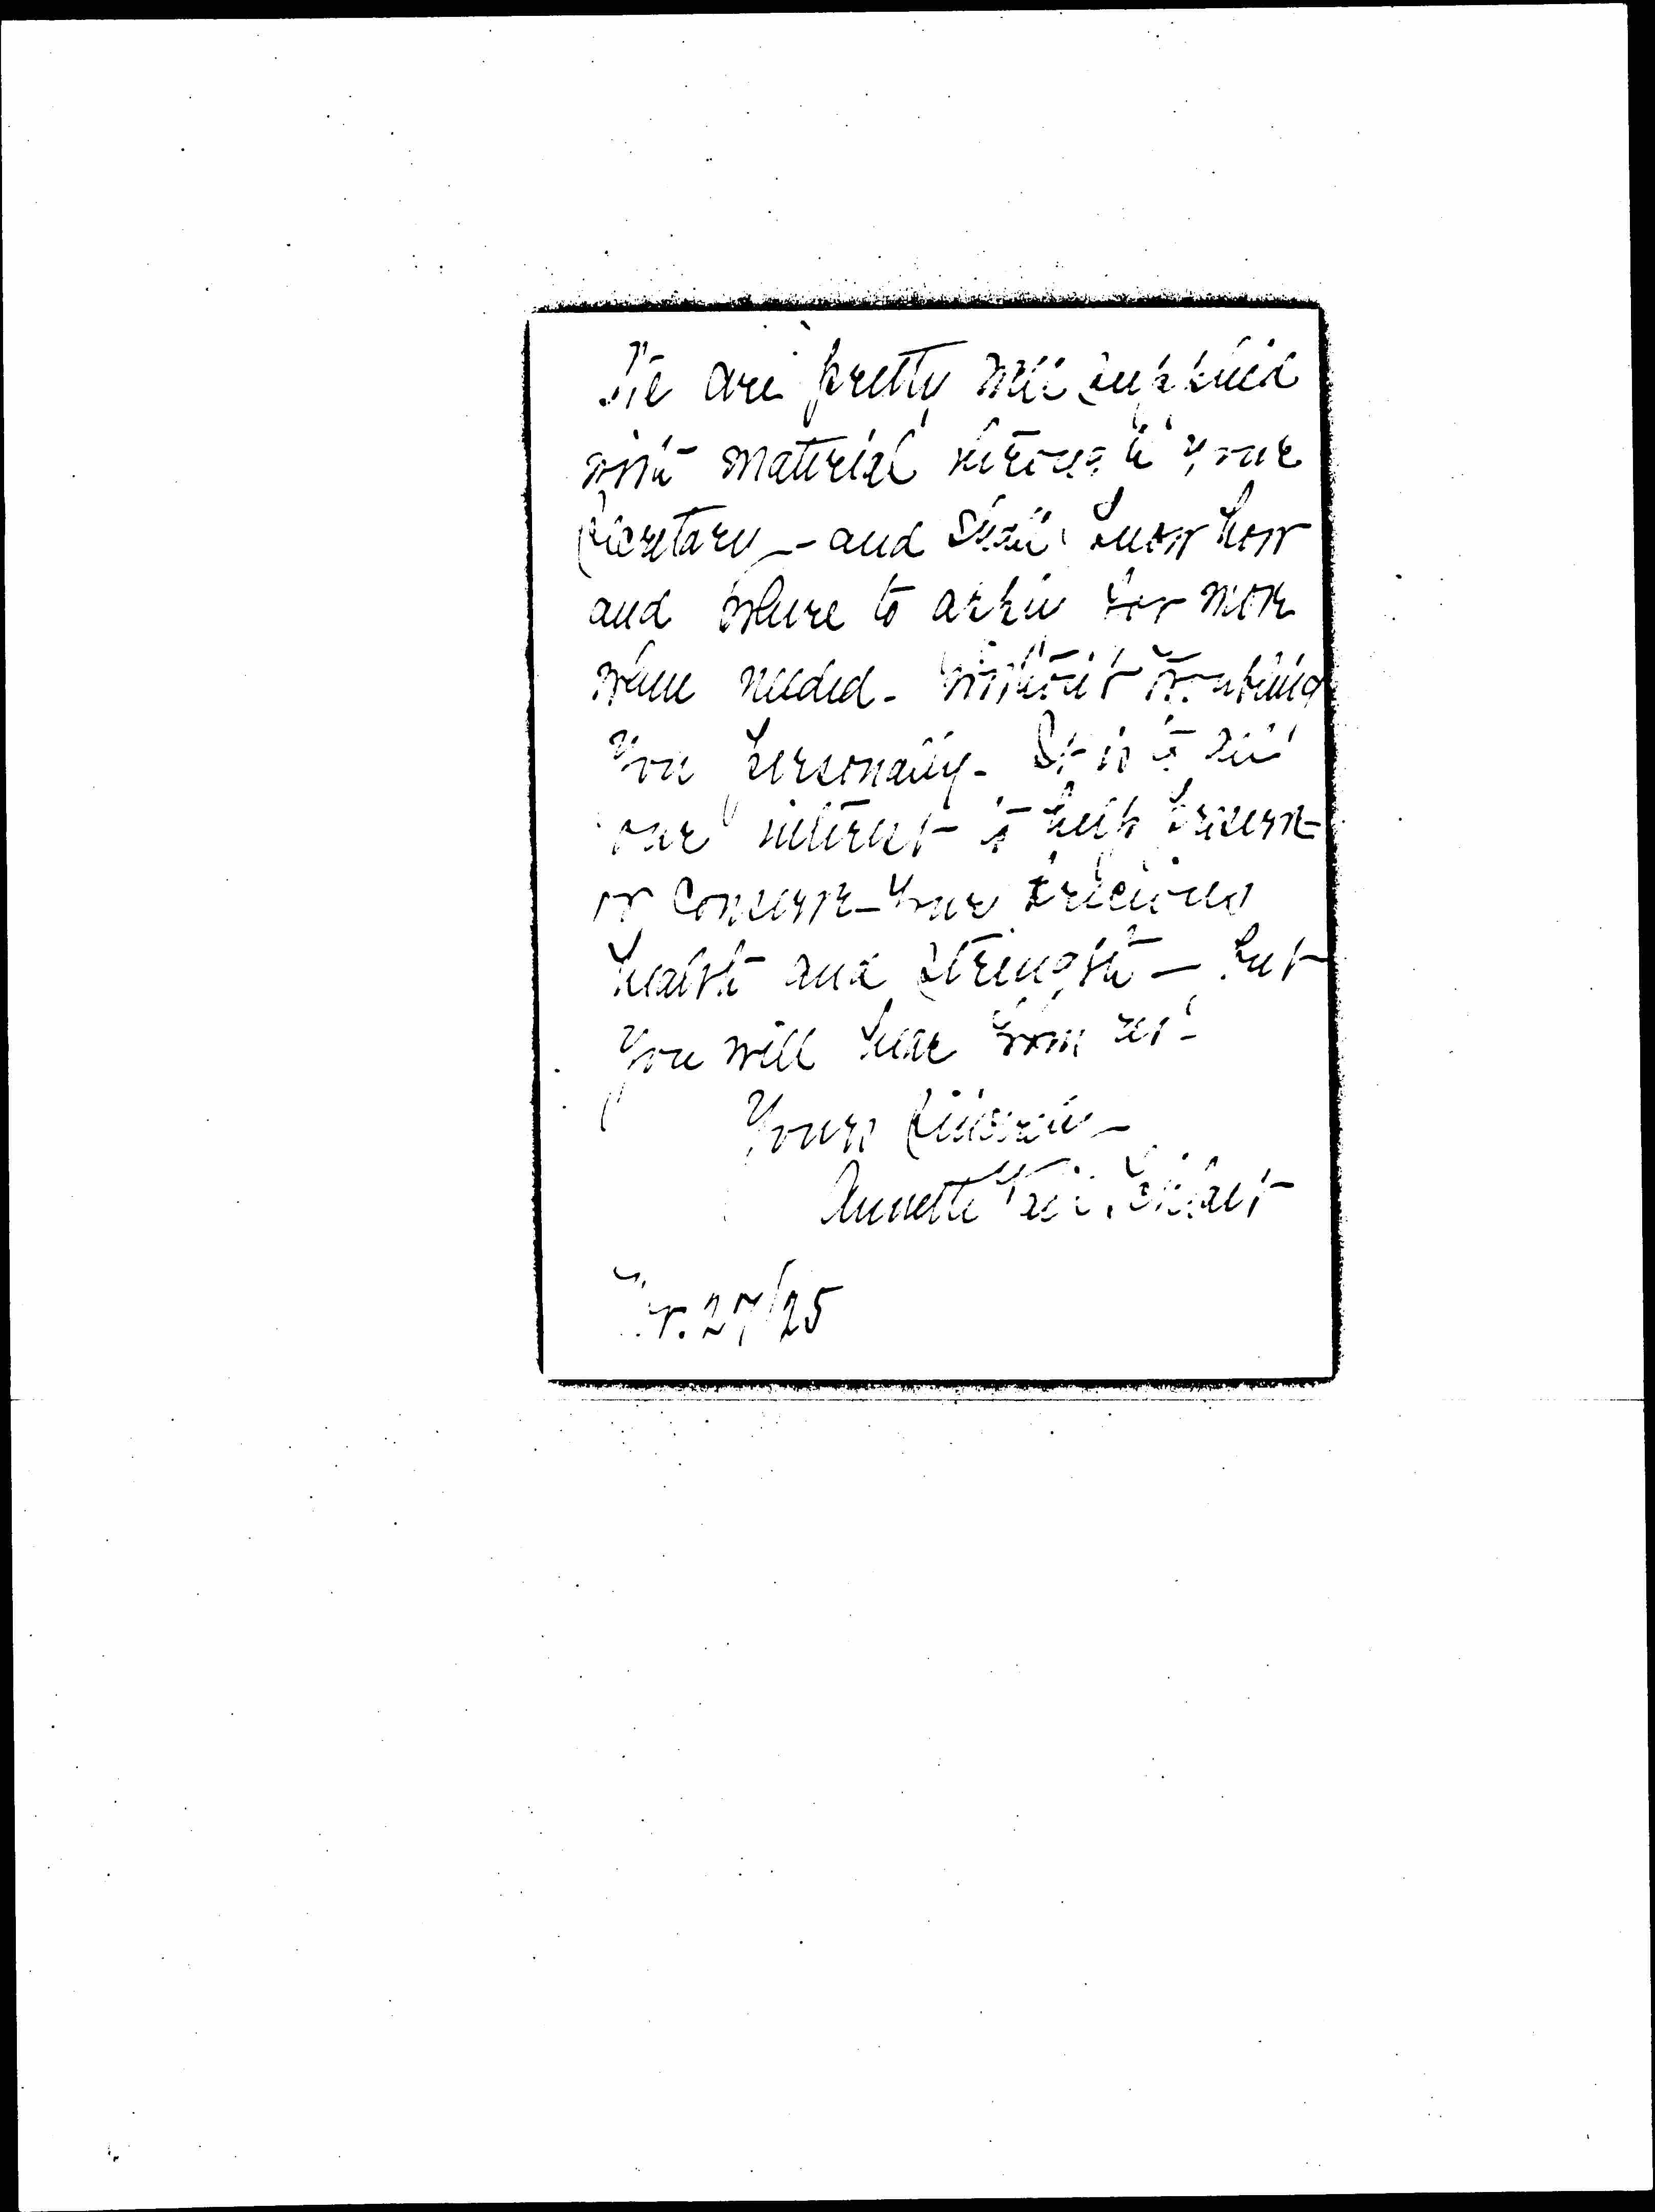 We are pretty well supplied
with material through your
Secretary - and shall know how
and where to apply for more
when needed - without troubling
you personally. It is to all
our interest to help preserve
or conserve - your precious
health and strength - but
you will hear from us -
Yours Sincerely -
Annette
27/25